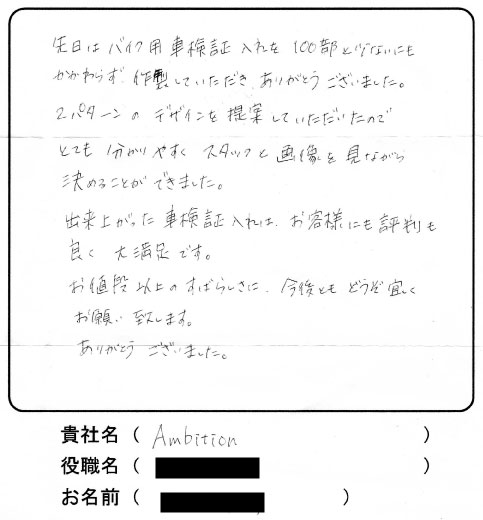 先日は バイク用 車検証 入れを 100部と少ないにも
かかわらず 作製していただき ありがとうございました。
2パターンの デザインを 提案していただいたので
とても 分かりやすく スタッフと 画像を 見ながら
決めることが できました。
出来上がった 車検証入れは、お客様にも 評判も
良く 大満足です。
お値段以上の すばらしさに、今後とも どうぞ宜しく
お願い 致します。
ありがとう ございました。
貴社名（ Ambition ）
役職名（ ）
お名前（ ）